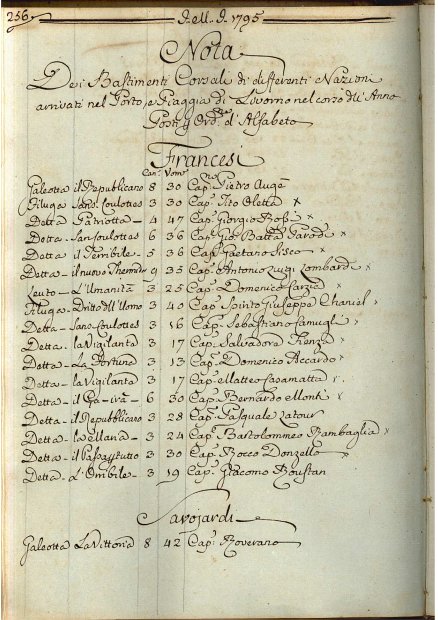 256
1795
Nota
Dei Bastimenti Corsali di differenti Nazioni
arrivati nel Porto, e Piaggia di Livorno nel corso dell' Anno
Posti p Ord:ne d'Alfabeto
Francesi
Can: Uom:
Galeotta il Republicano 8 30 Cap:no Pietro Augé
Filuga Sans Coulottes 3 30 Cap: Tito Oletta ×
Detta Patriotta 4 47 Cap: Giorgio Boss ×
Detta Sanscoulottes 6 36 Cap: Gio: Batta Varode ×
Detta il Terribile 5 36 Cap: Gaetano Sisco ×
Detta il nuovo 9 35 Cap: Antonio Luigi Lombard ×
Leuto L'Umanità 3 25 Cap: Domenico ×
Filuga Dritto dll' Uomo 3 40 Cap: Giuseppe ×
Detta Sanscoulottes 3 16 Cap: Sebastiano Samugli ×
Detta la Vigilanta 3 17 Cap: Salvadore Fienza ×
Detta La Fortuna 3 13 Cap: Domenico Accardo ×
Detta la Vigilanta 3 17 Cap: Matteo Casamatta
Detta il Ça-irà 6 30 Cap: Bernardo Monti ×
Detta il Republicano 3 28 Cap: Pasquale Latour
Detta la 3 24 Cap: Bartolommeo Bambaglia ×
Detta il Passapertutto 3 30 Cap: Rocco Donzello ×
Detta L' 3 19 Cap: Giacomo Boustan
Savojardi
Galeotta La Vittoria 8 42 Cap: Roverano